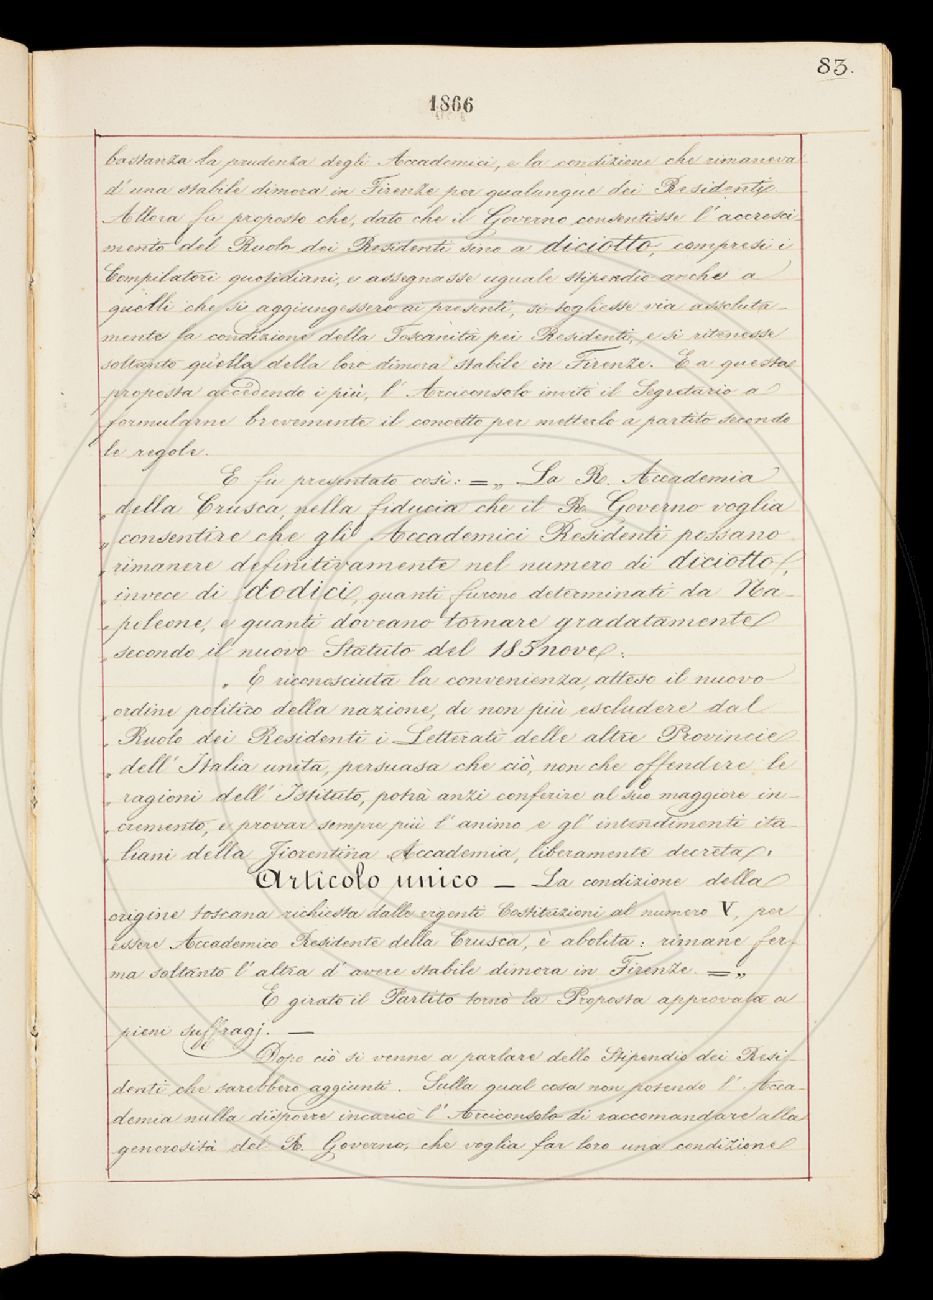 83.
1866
bastanza la prudenza degli Accademici, e la condizione che rimaneva
d'una stabile dimora in Firenze per qualunque dei Residenti.
Allora fu proposto che, dato che il Governo consentisse l'accresci-
mento del Ruolo dei Residenti sino a diciotto, compresi i
Compilatori quotidiani, e assegnasse uguale stipendio anche a
quelli che si aggiungessero ai presenti, si togliesse via assoluta-
mente la condizione della Toscanità pei Residenti, e si ritenesse
soltanto quella della loro dimora stabile in Firenze. E a questa
proposta accedendo i più, l'Arciconsolo invitò il Segretario a
formularne brevemente il concetto per metterlo a partito secondo
le regole.
E fu presentato così: =„ La R. Accademia
„ della Crusca, nella fiducia che il R. Governo voglia
„ consentire che gli Accademici Residenti possano
„ rimanere definitivamente nel numero di diciotto,
„ invece di dodici, quanti furono determinati da Na-
„ poleone, e quanti doveano tornare gradatamente
„ secondo il nuovo Statuto del 185nove;
„ E riconosciuta la convenienza, atteso il nuovo
„ ordine politico della nazione, di non più escludere dal
„ Ruolo dei Residenti i Letterati delle altre Provincie
„ dell'Italia unita, persuasa che ciò, non che offendere le
„ ragioni dell'Istituto, potrà anzi conferire al suo maggiore in-
„ cremento, e provar sempre più l'animo e gl'intendimenti ita-
„ liani della Fiorentina Accademia, liberamente decreta:
Articolo unico — La condizione della
origine toscana richiesta dalle vigenti Costituzioni al numero V, per
essere Accademico Residente della Crusca, è abolita: rimane fer-
ma soltanto l'altra d'avere stabile dimora in Firenze. =„
E girato il Partito tornò la Proposta approvata a
pieni suffragj. —
Dopo ciò si venne a parlare dello Stipendio dei Resi-
denti che sarebbero aggiunti. Sulla qual cosa non potendo l'Acca-
demia nulla disporre incaricò l'Arciconsolo di raccomandare alla
generosità del R. Governo, che voglia far loro una condizione